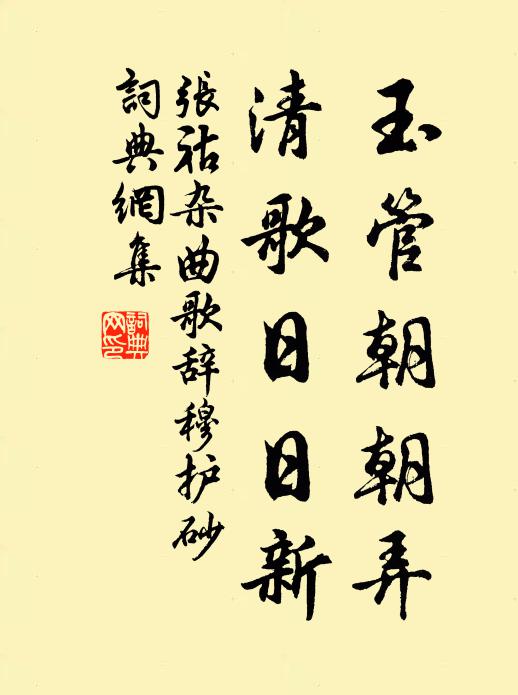 玉管朝朝弄
清歌日日新
張祜杂曲歌辞穆护砂
詞典網集
詞典网印